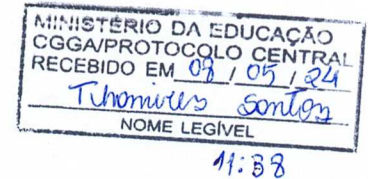 MINISTÉRIO DA EDUCAÇÃO
CGGA/PROTOCOLO CENTRAL
RECEBIDO EM 08 / 05 / 24
Santos
NOME LEGÍVEL
11:38